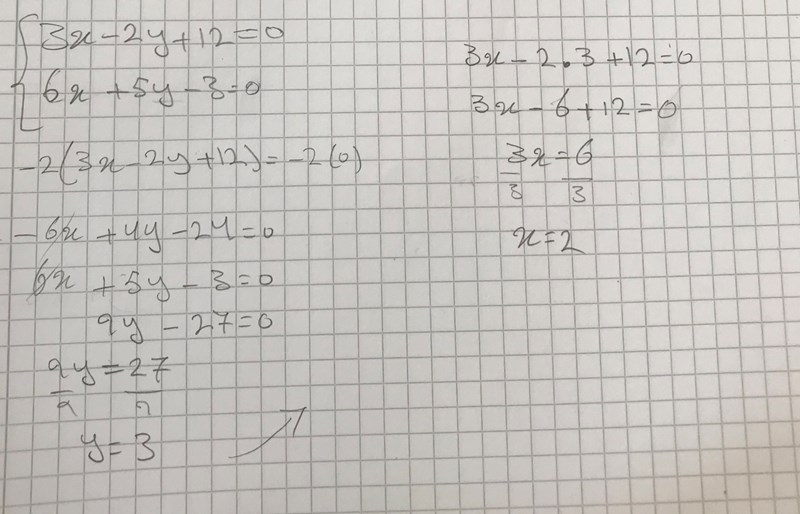 3x-2y+12=0
6x+5y-3=0
-2(3x-2y+12)=-2(0)
-6x+4y-24=0
6x+5y-3=0
9y-27=0
9y=27
9 9
y=3
3x-2.3+12=0
3x-6+12=0
3x=6
3 3
x=2